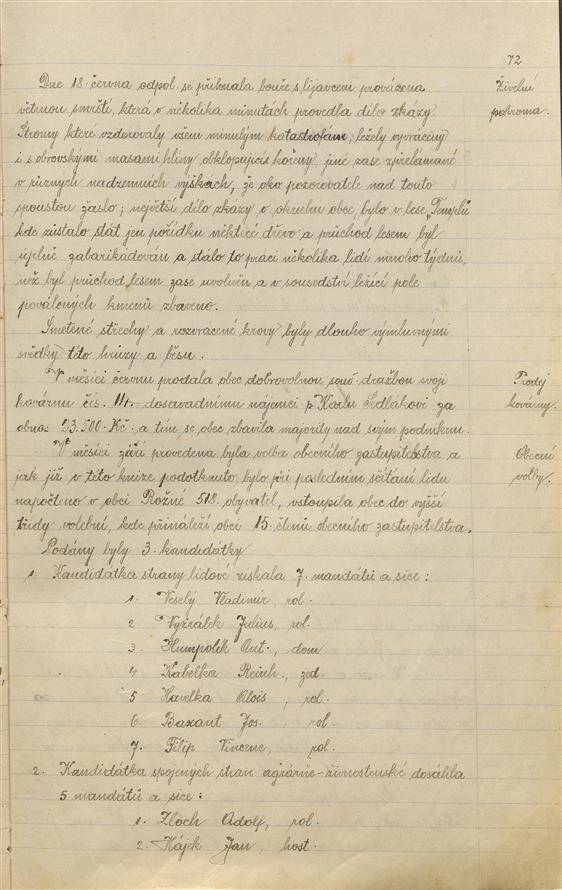 72
Dne 18. června odpol. se přihnala bouře s lijavcem provázena
Živelní
větrnou smrští, která v několika minutách provedla dílo zkázy.
pohroma.
Stromy které vzdorovaly všem minulým katastrofám, ležely vyvráceny
i s obrovskými masami hlíny obklopující kořeny jiné zase zpřelámané
v různých nadzemních výškách, že oko pozorovatele nad touto
spoustou žaslo; největší dílo zkázy v okruhu obce, bylo v lese „Templů
kde zůstalo stát jen pořídku některé dřevo a průchod lesem byl
úplně zabarikádován a stálo to práci několika lidí mnoho týdnů,
než byl průchod lesem zase uvolněn a v sousedství ležící pole
poválených kmenů zbaveno.
Smetené střechy a rozvrácené krovy byly dlouho výmluvnými
svědky této hrůzy a běsu.
V měsíci červnu prodala obec dobrovolnou soud. dražbou svoji
Prodej
kovárnu čís. 114. dosavadnímu nájemci p. Karlu Sedlákovi za
kovárny.
obnos 23.500 Kč. a tím se obec zbavila majority nad svým podnikem.
V měsíci září provedena byla volba obecního zastupitelstva a
Obecní
jak již v této knize podotknuto, bylo při posledním sčítání lidu
volby.
napočteno v obci Rožné 518. obyvatel, vstoupila obec do vyšší
třídy volební, kde přináleží obci 15. členů obecního zastupitelstva.
Podány byly 3. kandidátky
1. Kandidátka strany lidové získala 7. mandátů a sice:
1. Veselý Vladimír, rol.
2 Vyžrálek Julius, rol.
3. Humpolík Ant., dom
4 Kabelka Reinh., zed.
5 Havelka Alois, rol.
6 Baxant Jos. rol.
7. Filip Vincenc, rol.
2. Kandidátka spojených stran agrárně-živnostenské dosáhla
5 mandátů a sice:
1. Zloch Adolf, rol.
2. Hájek Jan, host.